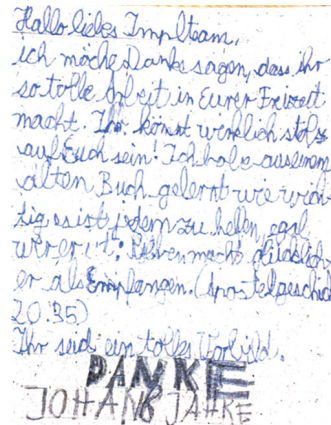 Hallo liebes Impfteam,
ich möche Danke sagen, dass ihr
so tolle Arbeit in Eurer Freizeit
macht. Ihr könnt wirklich stolz
auf Euch sein! Ich habe aus einem
alten Buch gelernt wie wich-
tig es ist jedem zu helfen, egal
wer er ist: macht glücklich-
er als Empfangen. (Apostelgeschich
20:35)
Ihr seid ein tolles Vorbild.
DANKE
JOHANN JAHKE